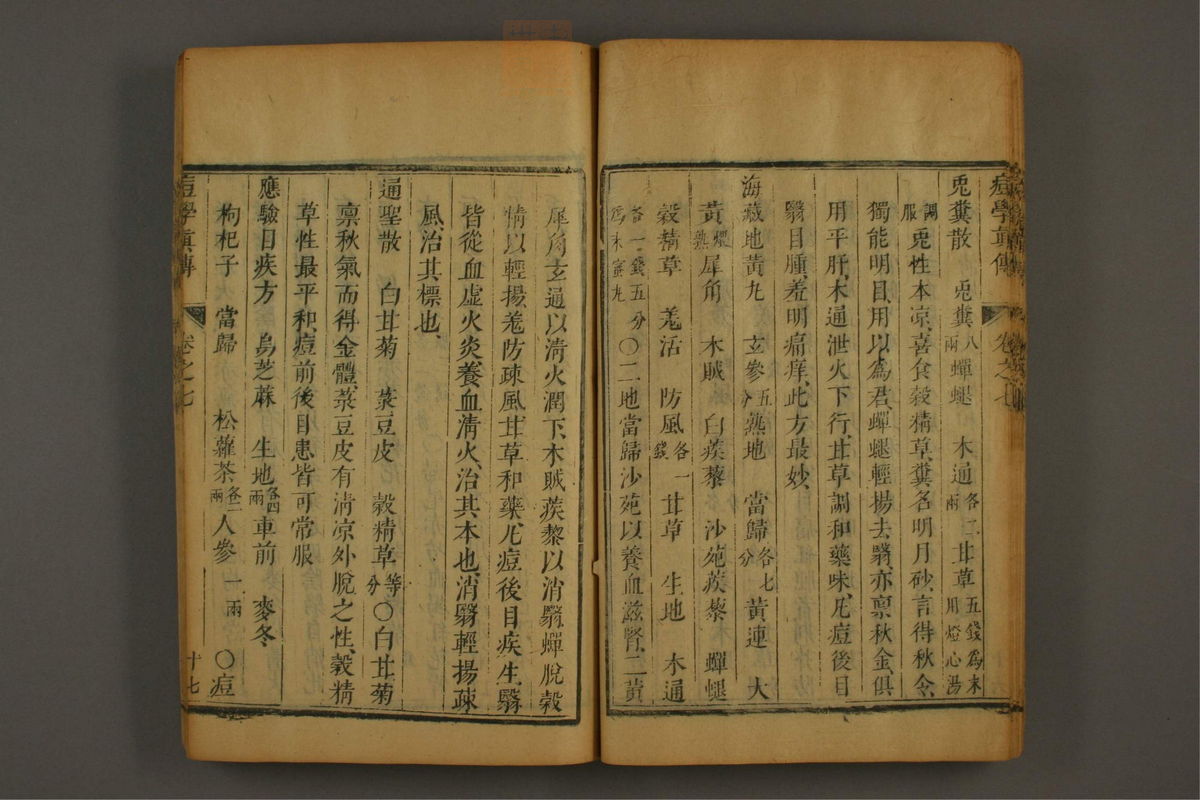 痘學眞傳 卷之七
兎糞散 兎糞八兩 蟬蛻 木通各二兩 甘草五錢爲末用燈心湯
調服 兎性本凉、喜食穀精草、糞名明月砂、言得秋令、
獨能明目、用以爲君、蟬蛻輕揚去翳、亦禀秋金、俱
用平肝、木通泄火下行、甘草調和藥味、凡痘後目
翳目腫、羞明痛痒、此方最妙、
海藏地黃丸 玄參五分 熟地 當歸各七分 黃連 大
黃煨熟 犀角 木賊 白蒺藜 沙苑蒺藜 蟬蛻
穀精草 羗活 防風各一錢 甘草 生地 木通
各一錢五分爲末蜜丸 〇二地當歸沙苑以養血滋腎、二黃
犀角玄通以淸火潤下、木賊蒺藜以消翳、蟬脫穀
精以輕揚、羗防疎風、甘草和藥、凡痘後目疾生翳、
皆從血虛火炎、養血淸火、治其本也、消翳輕揚疎
風、治其標也、
通聖散 白甘菊 菉豆皮 穀精草等分 〇白甘菊
禀秋氣而得金體、菉豆皮有淸凉外脫之性、穀精
草性最平和、痘前後目患皆可常服
應驗目疾方 烏芝蔴 生地各四兩 車前 麥冬
枸杞子 當歸 松蘿茶各二兩 人參一兩 〇痘
痘學眞傳 卷之七 十七